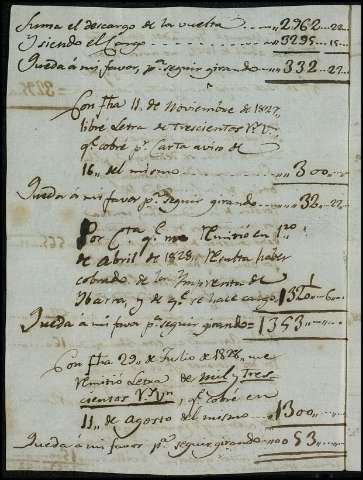 Suma el descargo de la vuelta ..... " 2962 .. 22 ..
Y siendo el Cargo ..... " 3295 .. 15 ..
Queda á mi favor, pa. seguir girando ..... " 332 .. 27 ..
Con fha 11,, de Noviembre de 1827,
libré Letra de Trescientos Rs. Vn.
qe. cobré pr. Carta aviso de
16,, del mismo ..... " 300 ..
Queda á mi favor pa. seguir girando ..... " 32 .. 22 ..
Por Cta. qe. me remitió en 1ro.
de Abril de 1828,, resulta haber
cobrado de la Imprenta de
Ybarra, y de qe. se hace cargo 1320
Queda á mi favor pa. seguir girando = 1353
Con fha 29,, de Julio de 1828,, me
remitió Letra de Mil y Tres
cientos Rs. Vn. y qe. cobré en
11,, de Agosto del mismo ..... 1300 ..
Queda á mi favor pa. seguir girando .. 0053 ..